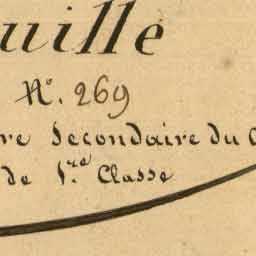 uille
N°. 269
re Secondaire du C
de 1re Classe